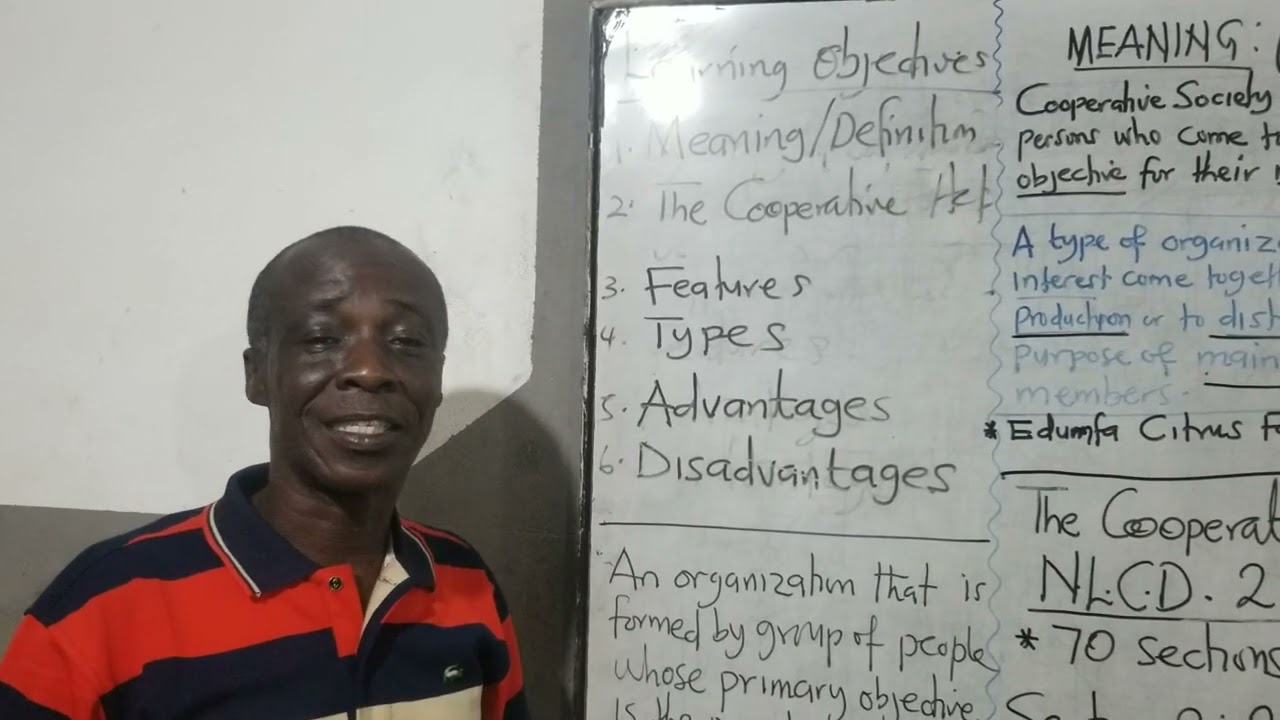 Learning Objectives
1. Meaning/Definition
2. The Cooperative Act
3. Features
4. Types
5. Advantages
6. Disadvantages
An organization that is
formed by group of people
whose primary objective
MEANING:
Cooperative Society
persons who come
objective for their
A type of
Interest come
production or to
purpose of
members.
* Edumfa Citrus
The
N.L.C.D. 2
* 70 sections